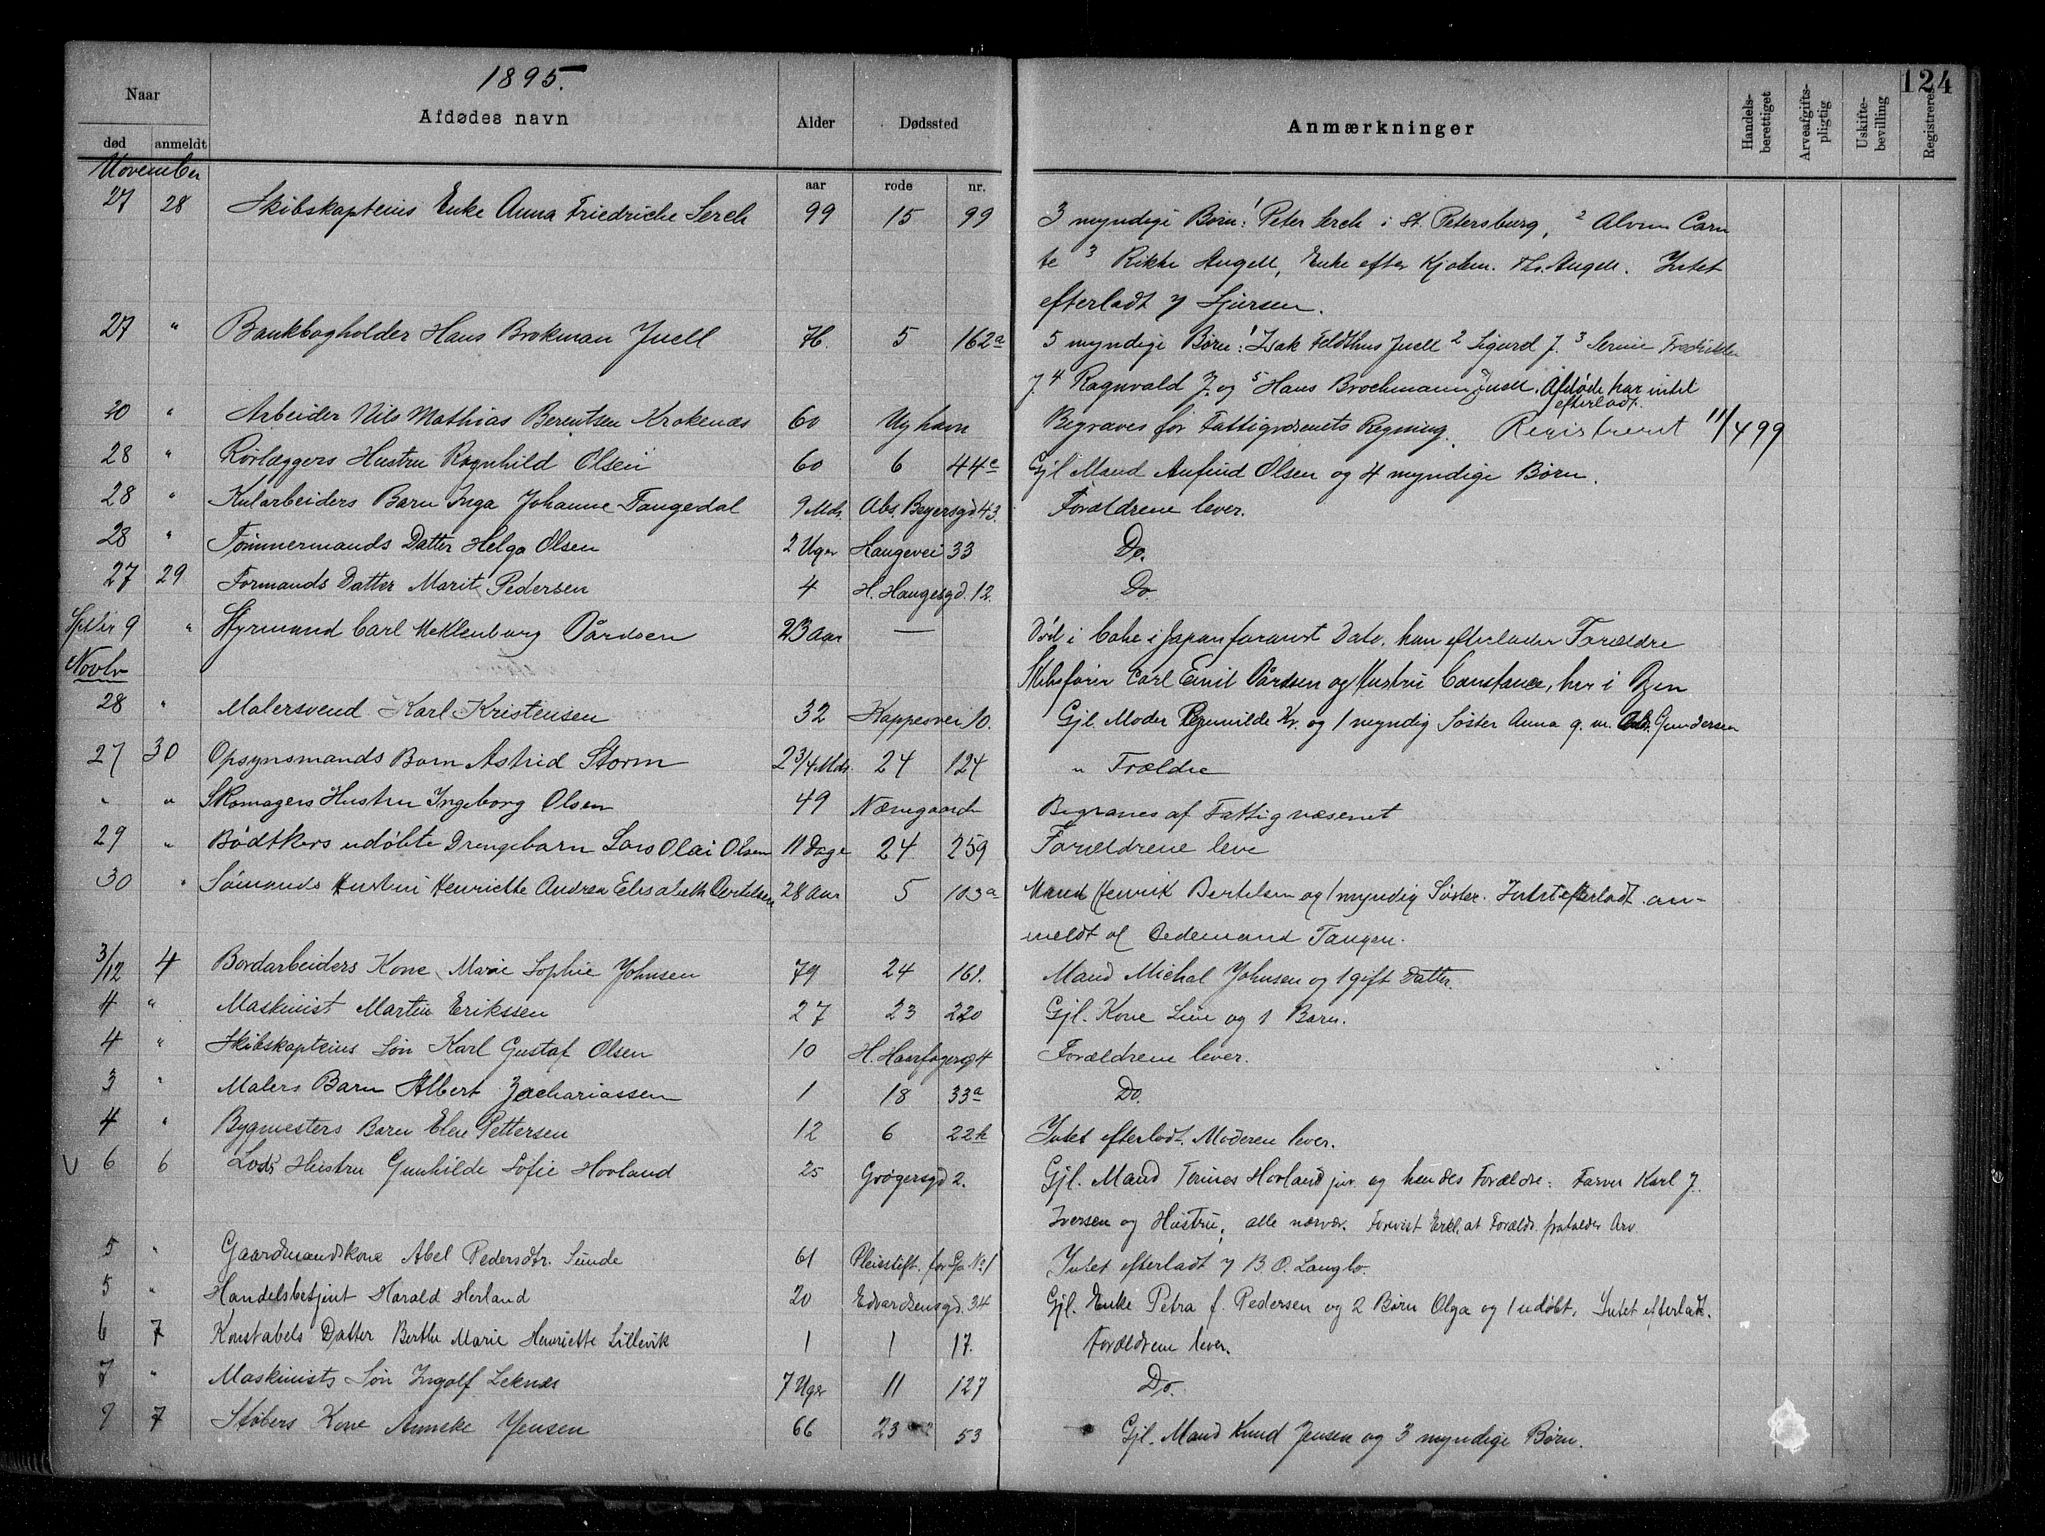 1895.
124
Naar
Afdødes navn
Alder
Dødssted
Anmærkninger
Handels-
berettiget
Arveafgifts-
pligtig
Uskifte-
bevilling
Registreres
død anmeldt
November
aar rode nr.
27 28 Skibskapteins Enke Anna Friedriche Lerch 99 15 99 3 myndige Børn: 1 Peter Lerch i St. Petersburg, 2 Alvine
3 Rikke Angell, Enke efter Kjøbm. Th. Angell. Intet
efterladt
27 " Bankbogholder Hans Brokman Juell 76. 5 162a 5 myndige Børn: 1 Isak Feldthus Juell 2 Sigurd J. 3
J. 4 Ragnvald J. og 5 Hans Brochmann Juell. Afdøde har intet
efterladt.
20 " Arbeider Nils Mathias Berentsen Krokenæs 60 Nyhavn Begraves for Fattigvæsenets Regning. Registreret 11/4 99
28 " Rørlæggers Hustru Ragnhild Olsen 60 6 44c Gjl. Mand Anfind Olsen og 4 myndige Børn.
28 " Kularbeiders Barn Inga Johanne Tangedal 9 Mdr. Abs. Beyersgd. 43. Forældrene lever.
28 " Tømmermands Datter Helga Olsen 2 Uger Haugevei 33 Do.
27 29 Formands Datter Marit Pedersen 4 H. Haugesgd. 12. Do.
Septbr 9 " Styrmand Carl Meklenborg Pårdsen 23 aar — Død i Cobe i Japan foranst. Dato, han efterlader Forældre
Novbr Skibsfører Carl Emil Pårdsen og Hustru Constance, her i Byen
28 " Malersvend Karl Kristensen 32 Kappesvei 10. Gjl. Moder Kr. og 1 myndig Søster Anna g. m. Gundersen
27 30 Opsynsmands Barn Astrid Storm 2 3/4 Mdr. 24 124 " Frældre
" " Skomagers Hustru Ingeborg Olsen 49 Begraves af Fattigvæsenet
29 " Bødtkers udøbte Drengebarn Lars Olai Olsen 11 Dage 24 259 Forældrene leve
30 " Sømands Hustru Henriette Andrea Elisabeth Bertelsen 28 aar 5 103a Mand Henrik Bertelsen og 1 myndig Søster. Intet efterladt. an-
meldt af Bedemand Tangen.
3/12 4 Bordarbeiders Kone Marie Sophie Johnsen 79 24 161. Mand Michal Johnsen og 1 gift Datter.
4 " Maskinist Martin Erikssen 27 23 220 Gjl. Kone Line og 1 Barn.
4 " Skibskapteins Søn Karl Gustaf Olsen 10 H. Haarfagersg 4 Forældrene lever.
3 " Malers Barn Albert Zachariassen 1 18 33a Do.
4 " Bygmesters Barn Elen Pettersen 12 6 22h Intet efterladt. Moderen lever.
V 6 6 Lods Hustru Gunhilde Sofie Hovland 25 Grøgersgd 2. Gjl. Mand Hovland jnr. og hendes Forældre: Farver Karl J.
Iversen og Hustru; alle nærvær. Forevist Erkl. at Forældr. frafalder Arv.
5 " Gaardmandskone Abel Pedersdtr. Sunde 61 Pleiestift. for Sp. No 1 Intet efterladt B. O. Langlo.
5 " Handelsbetjent Harald Herland 20 Edvardsensgd. 34 Gjl. Enke Petra f. Pedersen og 2 Børn Olga og 1 udøbt. Intet efterladt.
6 7 Konstabels Datter Berthe Marie Henriette Lillevik 1 1 17. Forældrene lever.
7 " Maskinists Søn Ingolf Leknæs 7 Uger 11 127 Do.
7 7 Støbers Kone Anneke Jensen 66 23 53 Gjl. Mand Knud Jensen og 3 myndige Børn.